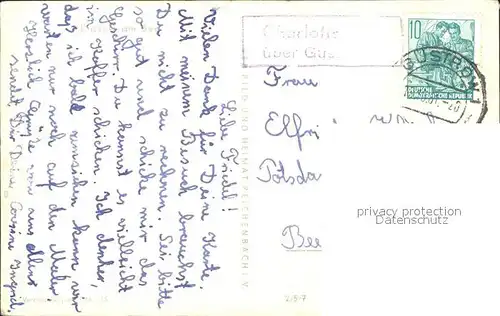 Liebe Friedel!
Vielen Dank für Deine Karte.
Mit meinem Besuch brauchst
Du nicht zu rechnen. Sei bitte
so gut und schicke mir das
Geschirr. Du kannst es vielleicht
im Koffer schicken. Ich denke,
daß ich bald umziehen kann wir
warten nur noch auf den Maler
Herzlich Grüße von uns allen
sendet Dir Deine Cousine Ingrid.
BILD UND HEIMAT REICHENBACH I. V.
2/5-7
Charlotte
über Güs
10
DEUTSCHE
DEMOKRATISCHE REPUBLIK
GÜSTROW 1
Frau
Elfri
Potsda
Bee
privacy protection
Datenschutz